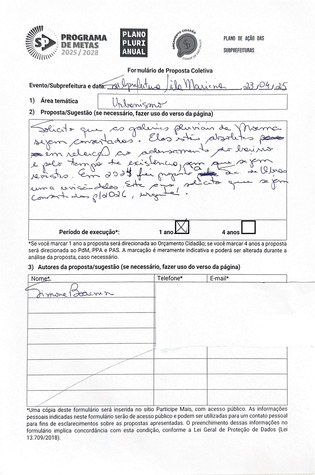 PROGRAMA
DE METAS
2025 / 2028
PLANO
PLURI
ANUAL
PLANO DE AÇÃO DAS
SUBPREFEITURAS
Formulário de Proposta Coletiva
Evento/Subprefeitura e data: Subprefeitura Vila Mariana, 23/04/25
1) Área temática Urbanismo
2) Proposta/Sugestão (se necessário, fazer uso do verso da página)
Solicito que as galerias pluviais de Moema
sejam consertadas. Elas estão obsoletas
em relação ao adensamento do bairro
e pelo tempo de existência,
Em 2024 foi
uma Este ano, solicito que sejam
p/ 2026, urgente!
Período de execução*: 1 ano X 4 anos
*Se você marcar 1 ano a proposta será direcionada ao Orçamento Cidadão; se você marcar 4 anos a proposta
será direcionada ao PdM, PPA e PAS. A marcação é meramente indicativa e poderá ser alterada durante a
análise da proposta, caso necessário.
3) Autores da proposta/sugestão (se necessário, fazer uso do verso da página)
Nome* Telefone* E-mail*
Simone
*Uma cópia deste formulário será inserida no sítio Participe Mais, com acesso público. As informações
pessoais indicadas neste formulário serão de acesso público e podem ser utilizadas para um contato pessoal
para fins de esclarecimentos sobre as propostas apresentadas. O preenchimento dessas informações no
formulário implica concordância com esta condição, conforme a Lei Geral de Proteção de Dados (Lei
13.709/2018).